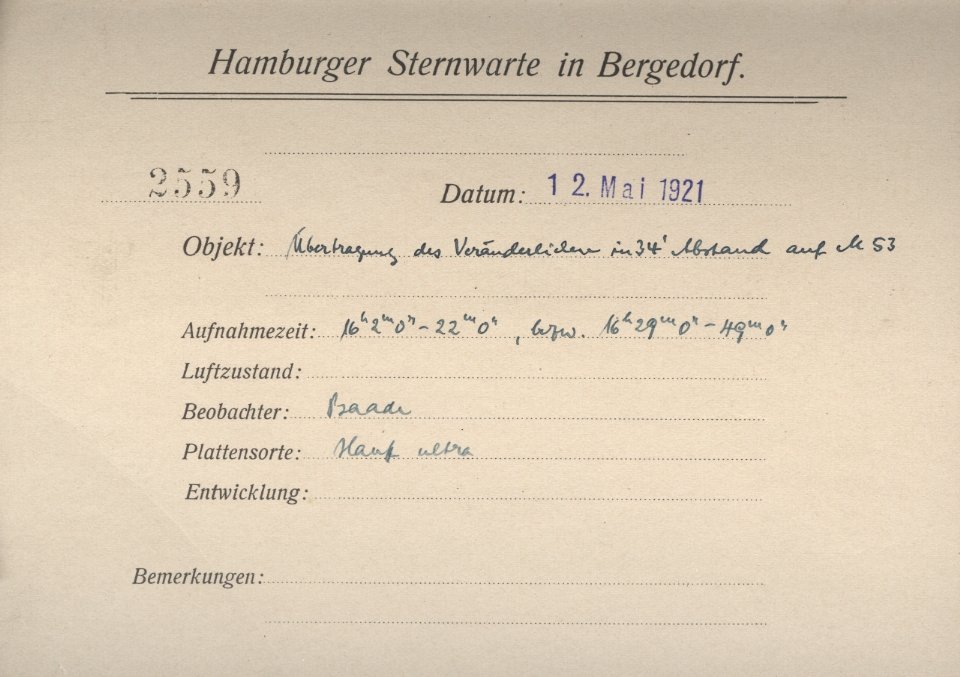 Hamburger Sternwarte in Bergedorf.
2559 Datum: 12. Mai 1921
Objekt: Übertragung des Veränderlichen in 34' Abstand auf M 53
Aufnahmezeit: 16h2m0s - 22m0s, bezw. 16h29m0s - 49m0s
Luftzustand:
Beobachter: Baade
Plattensorte: Hauff ultra
Entwicklung:
Bemerkungen: